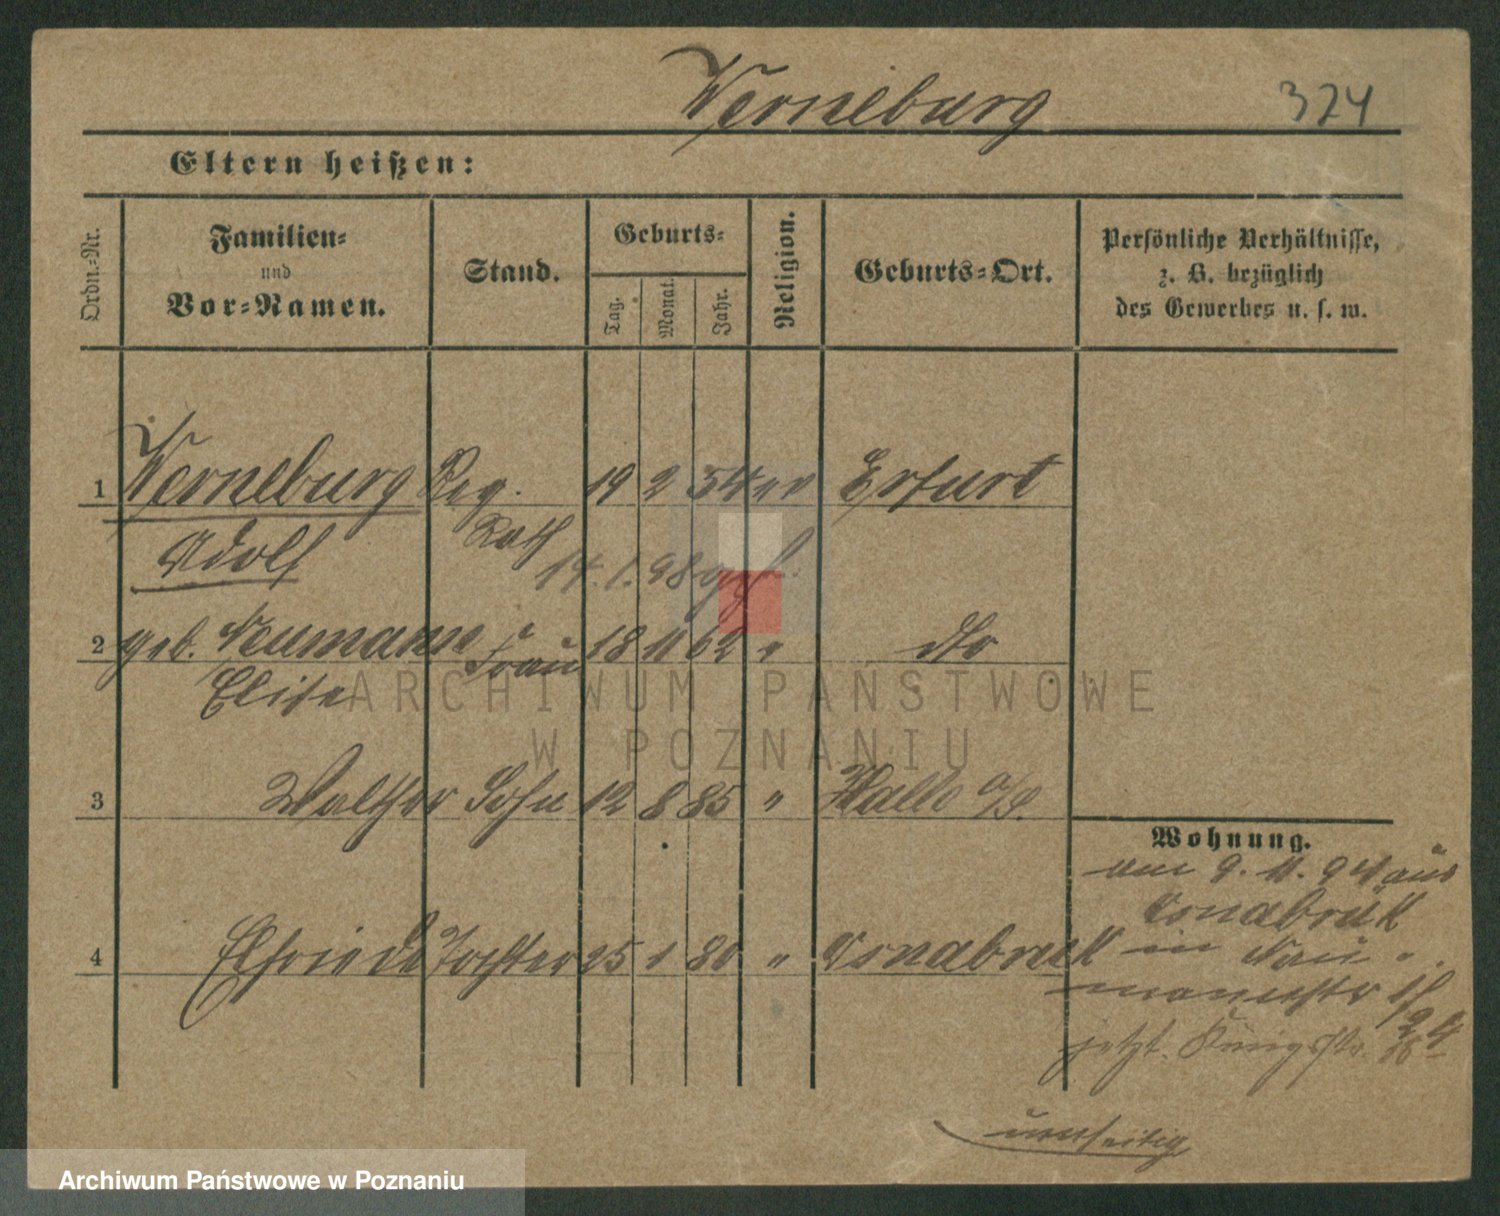 Werneburg 324
Eltern heißen:
Ordn.-Nr. Familien- und Vor-Namen. Stand. Geburts- Tag. Monat. Jahr. Religion. Geburts-Ort. Persönliche Verhältnisse, z. B. bezüglich des Gewerbes u. s. w.
1 Werneburg Reg. 19 2 54 ev Erfurt
Adolf Rath
14.1.98
2 geb. Neumann Frau 18 11 62 " dto
Elise
ARCHIWUM PAŃSTWOWE
W POZNANIU
3 Walther Sohn 12 8 85 " Halle a/S.
Wohnung.
am 9. 11. 94 aus
Osnabrück
4 Elfriede Tochter 25 1 80 " Osnabrück in Nau-
mannstr
jetzt Königsstr.
umseitig
Archiwum Państwowe w Poznaniu